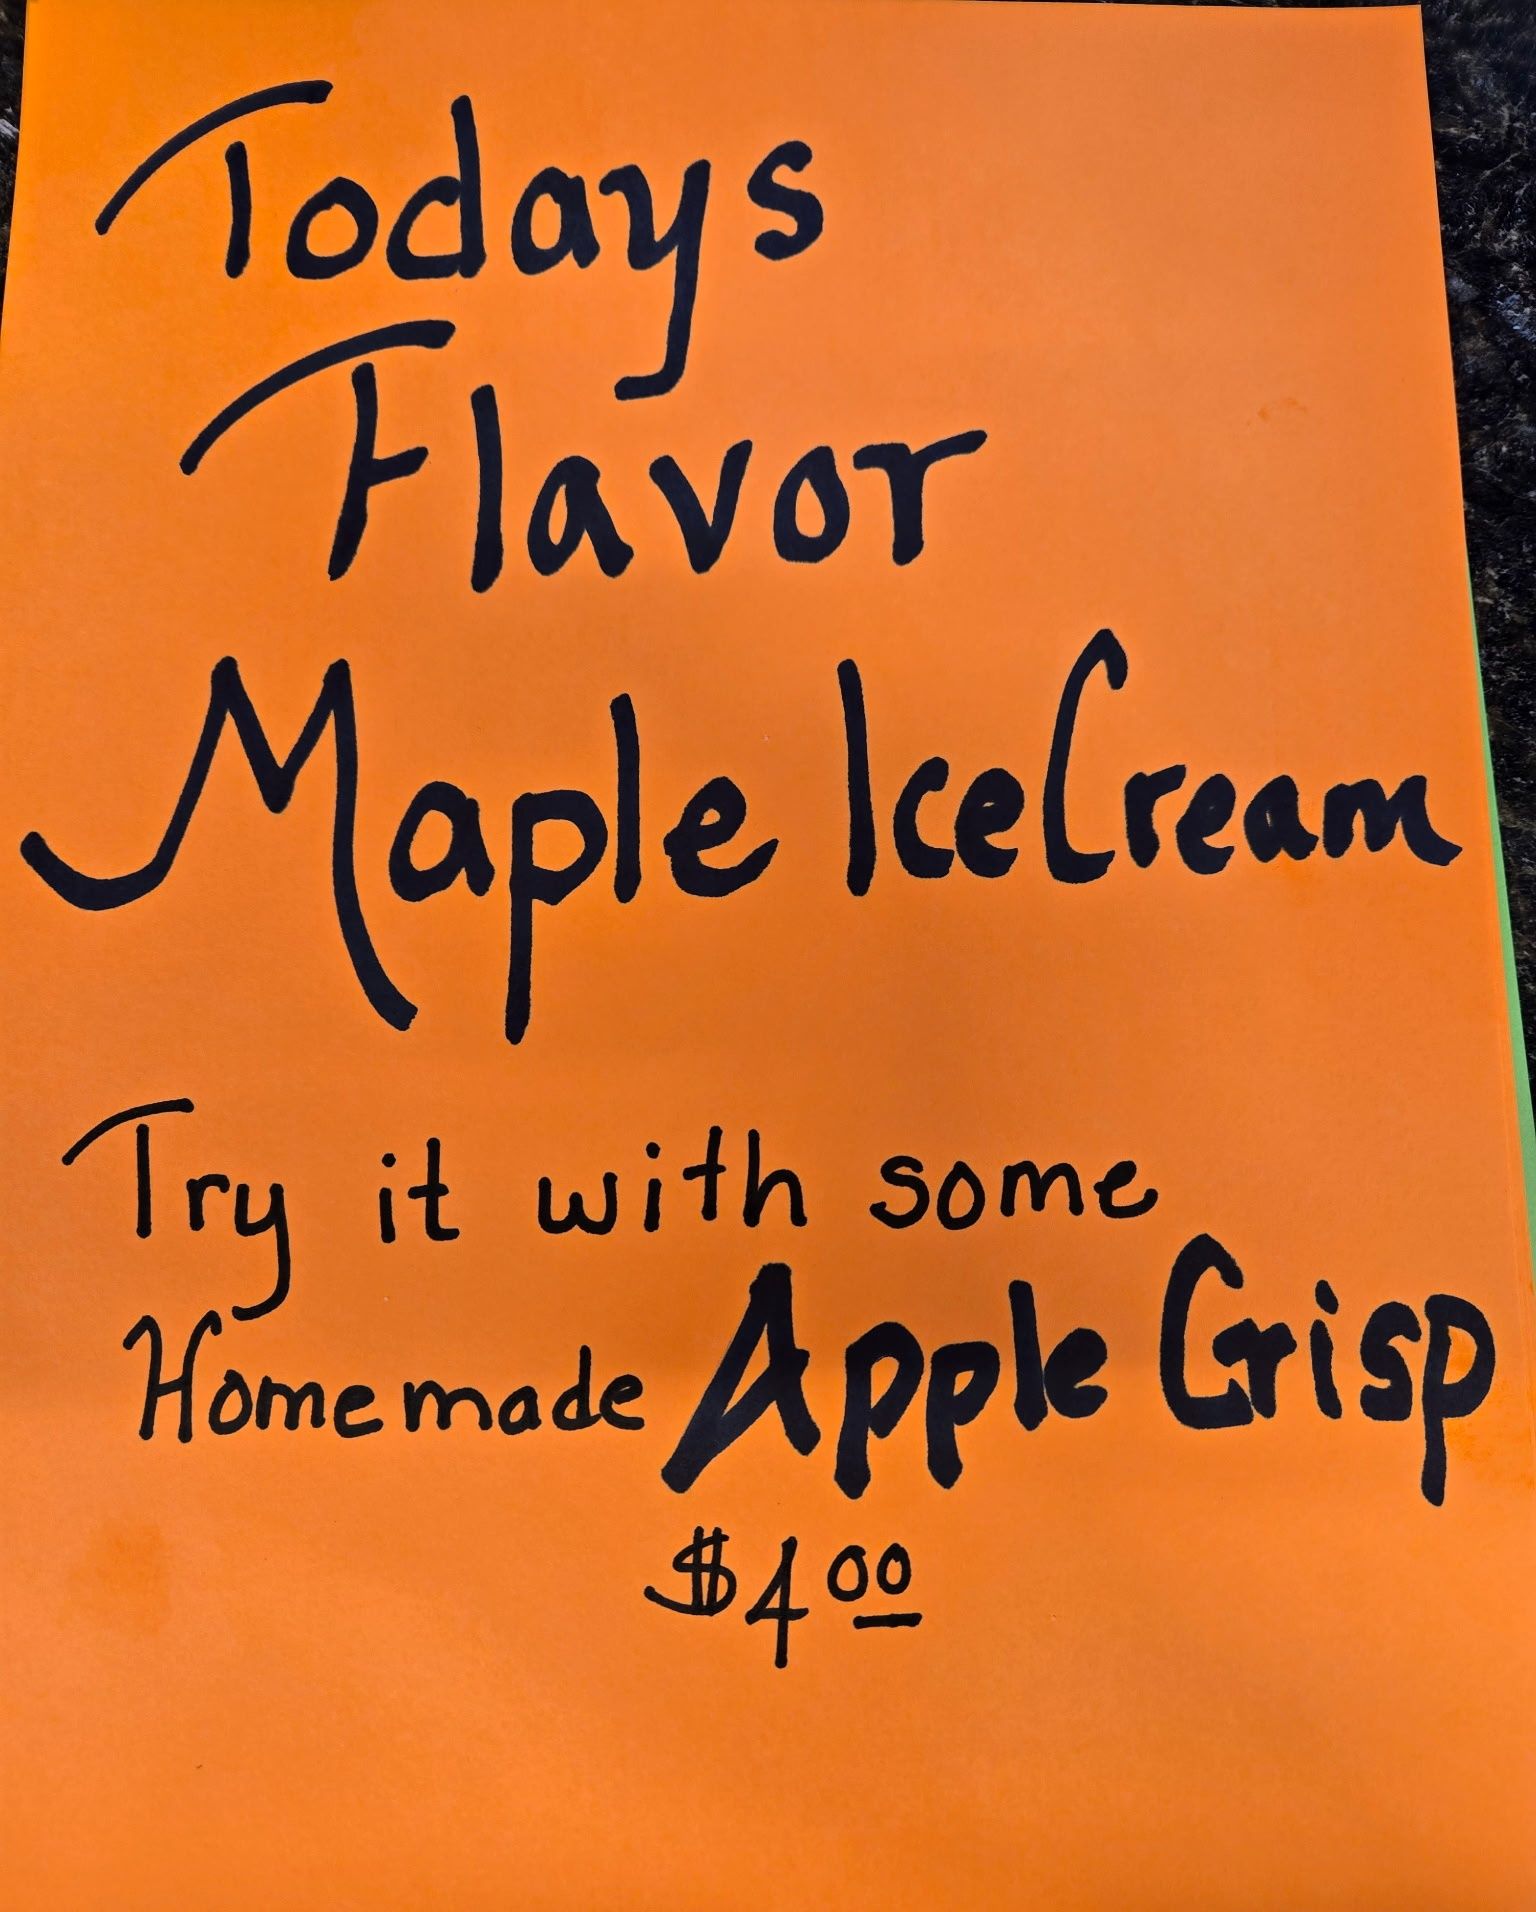 Todays
Flavor
Maple IceCream
Try it with some
Homemade Apple Crisp
$4.00